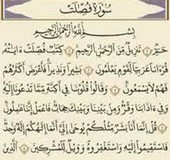 سُورَةُ فُصِّلَتْ
بِسْمِ اللَّهِ الرَّحْمَٰنِ الرَّحِيمِ
حمٓ ۝ تَنزِيلٌ مِّنَ الرَّحْمَٰنِ الرَّحِيمِ ۝ كِتَٰبٌ فُصِّلَتْ ءَايَٰتُهُۥ
قُرْءَانًا عَرَبِيًّا لِّقَوْمٍ يَعْلَمُونَ ۝ بَشِيرًا وَنَذِيرًا فَأَعْرَضَ أَكْثَرُهُمْ
فَهُمْ لَا يَسْمَعُونَ ۝ وَقَالُوا۟ قُلُوبُنَا فِىٓ أَكِنَّةٍ مِّمَّا تَدْعُونَآ إِلَيْهِ
وَفِىٓ ءَاذَانِنَا وَقْرٌ وَمِنۢ بَيْنِنَا وَبَيْنِكَ حِجَابٌ فَٱعْمَلْ إِنَّنَا عَٰمِلُونَ
۝ قُلْ إِنَّمَآ أَنَا۠ بَشَرٌ مِّثْلُكُمْ يُوحَىٰٓ إِلَىَّ أَنَّمَآ إِلَٰهُكُمْ إِلَٰهٌ وَٰحِدٌ
فَٱسْتَقِيمُوٓا۟ إِلَيْهِ وَٱسْتَغْفِرُوهُ وَوَيْلٌ لِّلْمُشْرِكِينَ ۝ ٱلَّذِينَ